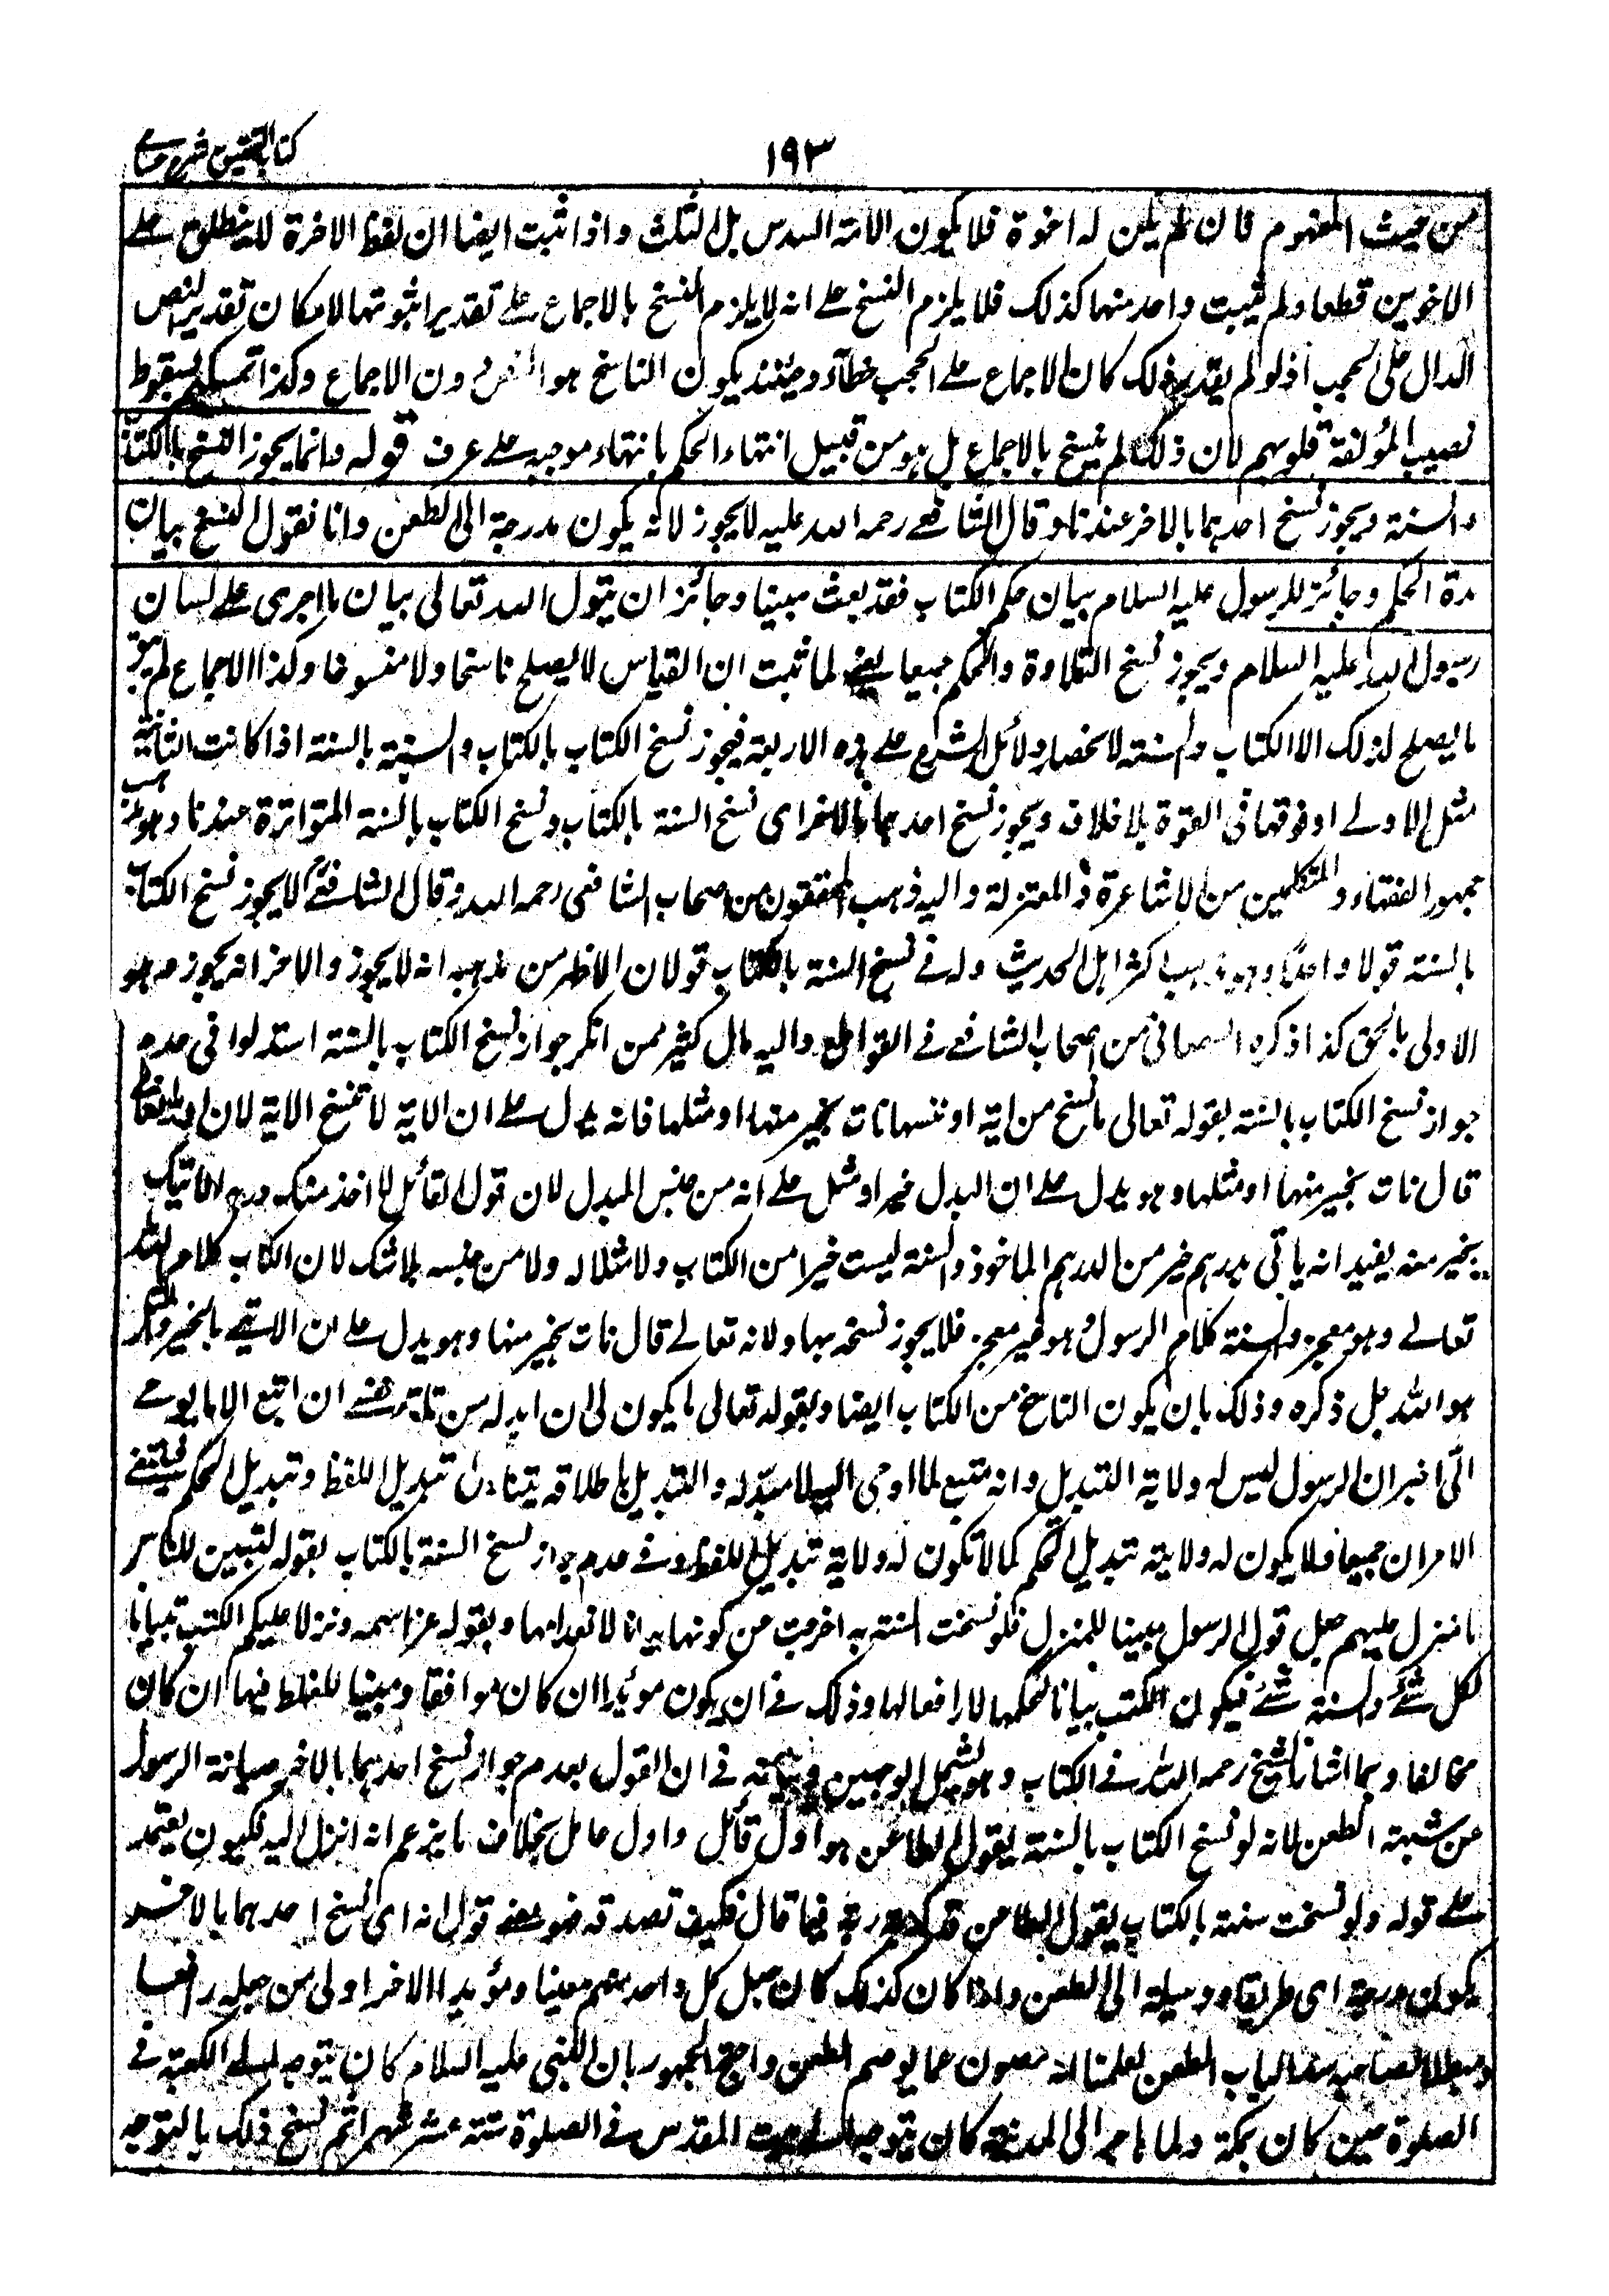 كتاب التحقيق شرح حسامى
١٩٣
من حيث المفهوم فان لم يكن له اخوة فلا يكون لامه السدس بل الثلث واذا ثبت ايضا ان لفظ الاخوة لا ينطلق على
الاخوين قطعا ولم يثبت واحد منهما كذلك فلا يلزم النسخ على انه لا يلزم النسخ بالاجماع على تقدير ثبوتهما لامكان تقدير النص
الدال على الحجب اذ لو لم يقدر ذلك كان الاجماع على الحجب خطأ وحينئذ يكون الناسخ هو النص دون الاجماع وكذا تمسكهم بسقوط
نصيب المؤلفة قلوبهم لان ذلك لم ينسخ بالاجماع بل هو من قبيل انتهاء الحكم بانتهاء موجبه على عرف قوله وانما يجوز النسخ بالكتاب
والسنة ويجوز نسخ احدهما بالاخر عندنا وقال الشافعى رحمه الله عليه لا يجوز لانه يكون مدرجة الى الطعن وانا نقول النسخ بيان
مدة الحكم وجائز للرسول عليه السلام بيان حكم الكتاب فقد بعث مبينا وجائز ان يتولى الله تعالى بيان ما اجرى على لسان
رسول الله عليه السلام ويجوز نسخ التلاوة والحكم جميعا يعنى لما ثبت ان القياس لا يصلح ناسخا ولا منسوخا وكذا الاجماع لم يبق
ما يصلح لذلك الا الكتاب والسنة لانحصار دلائل الشرع على هذه الاربعة فيجوز نسخ الكتاب بالكتاب والسنة بالسنة اذا كانت الثانية
مثل الاولى او فوقها فى القوة بلا خلاف ويجوز نسخ احدهما بالاخر اى نسخ السنة بالكتاب ونسخ الكتاب بالسنة المتواترة عندنا وهو مذهب
جمهور الفقهاء والمتكلمين من الاشاعرة والمعتزلة واليه ذهب المحققون من اصحاب الشافعى رحمه الله وقال الشافعى لا يجوز نسخ الكتاب
بالسنة قولا واحدا وهو مذهب اكثر اهل الحديث وله فى نسخ السنة بالكتاب قولان الاظهر من مذهبه انه لا يجوز والاخر انه يجوز وهو
الاولى بالحق كذا ذكره السمعانى من اصحاب الشافعى فى القواطع واليه مال كثير ممن انكر جواز نسخ الكتاب بالسنة استدلوا فى عدم
جواز نسخ الكتاب بالسنة بقوله تعالى ما ننسخ من اية او ننسها نات بخير منها او مثلها فانه يدل على ان الاية لا تنسخ الاية لان الله تعالى
قال نات بخير منها او مثلها وهو يدل على ان البدل خير او مثل على انه من جنس المبدل لان قول القائل لا اخذ منك درهما الا اتيك
بخير منه يفيد انه ياتى بدرهم خير من الدرهم الماخوذ والسنة ليست خيرا من الكتاب ولا مثلا له ولا من جنسه بلا شك لان الكتاب كلام الله
تعالى وهو معجز والسنة كلام الرسول وهو غير معجز فلا يجوز نسخه بها ولانه تعالى قال نات بخير منها وهو يدل على ان الاتى بالخير والمثل
هو الله جل ذكره وذلك بان يكون الناسخ من الكتاب ايضا وبقوله تعالى ما يكون لى ان ابدله من تلقاء نفسى ان اتبع الا ما يوحى
الىّ اخبر ان الرسول ليس له ولاية التبديل وانه متبع لما اوحى اليه لا مبدّل له والتبديل باطلاقه يتناول تبديل اللفظ وتبديل الحكم فينتفى
الامران جميعا فلا يكون له ولاية تبديل الحكم كما لا تكون له ولاية تبديل اللفظ وفى عدم جواز نسخ السنة بالكتاب بقوله لتبين للناس
ما نزل اليهم جعل قول الرسول مبينا للمنزل فلو نسخت السنة به اخرجت عن كونها بيانا لانعدامها وبقوله عز اسمه ونزلنا عليكم الكتب تبيانا
لكل شئ والسنة شئ فيكون الكتب بيانا لحكمها لا رافعا لها وذلك فى ان يكون مؤيدا ان كان موافقا ومبينا للغلط فيها ان كان
مخالفا وبما اشار الشيخ رحمه الله فى الكتاب وهو يشمل الوجهين وبيانه فى ان القول بعدم جواز نسخ احدهما بالاخر صيانة الرسول
عن شبهة الطعن لانه لو نسخ الكتاب بالسنة يقول الطاعن هو اول قائل واول عامل بخلاف ما يزعم انه انزل اليه فكيف يعتمد
على قوله ولو نسخت سنته بالكتاب يقول الطاعن قد كذبه ربه فيما قال فكيف نصدقه فهو معنى قوله انه اى نسخ احدهما بالاخر
يكون مدرجة اى طريقا ووسيلة الى الطعن واذا كان كذلك كان جعل كل واحد منهم معينا ومؤيدا الاخر اولى من جعله رافعا
ومبطلا لصاحبه سدا لباب الطعن لعلمنا انه مصون عما يوهم الطعن واحتج الجمهور بان النبى عليه السلام كان يتوجه الى الكعبة فى
الصلوة حين كان بمكة ولما هاجر الى المدينة كان يتوجه الى بيت المقدس فى الصلوة ستة عشر شهرا ثم نسخ ذلك بالتوجه